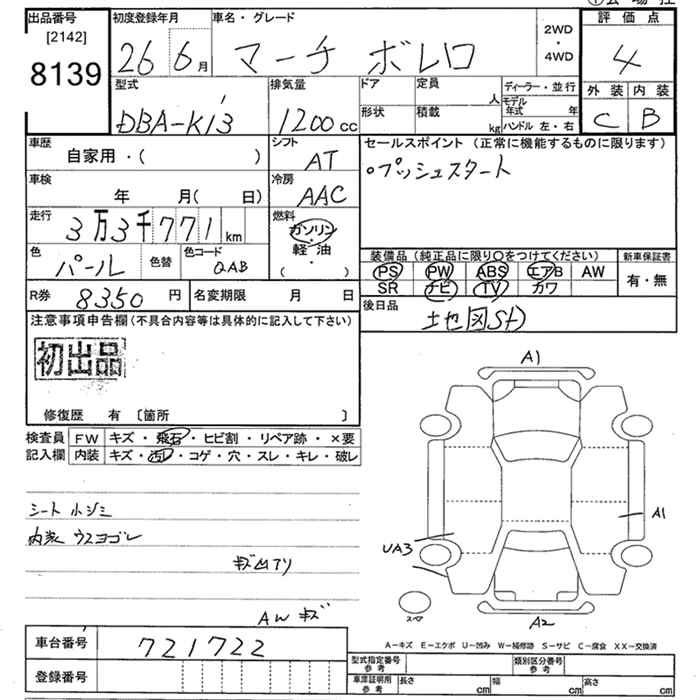 出品番号 初度登録年月 車名・グレード 評価点
[2142]
8139 26 6月 マーチ ボレロ 2WD・4WD 4
型式 排気量 ドア 定員 人 ディーラー・並行 外装 内装
DBA-K13 1200cc 形状 積載 kg モデル年式 年 ハンドル 左・右 C B
車歴 自家用・( ) シフト AT セールスポイント(正常に機能するものに限ります)
車検 年 月( 日) 冷房 AAC ○プッシュスタート
走行 3万3千771km 燃料 ガソリン・軽油・( )
色 パール 色替 色コード QAB
装備品(純正品に限り○をつけてください) 新車保証書
PS PW ABS エアB AW 有・無
SR ナビ TV カワ
R券 8350円 名変期限 月 日 後日品 地図SD
注意事項申告欄(不具合内容等は具体的に記入して下さい)
初出品
修復歴 有 〔箇所 〕
検査員 FW キズ・飛石・ヒビ割・リペア跡・×要
記入欄 内装 キズ・汚レ・コゲ・穴・スレ・キレ・破レ
シート小ジミ
内装 ウスヨゴレ
キズ凹アリ
AW キズ
A1
A1
UA3
スペア
A2
車台番号 721722
A−キズ E−エクボ U−凹み W−補修跡 S−サビ C−腐食 XX−交換済
登録番号 型式指定番号 参考 類別区分番号 参考
車庫証明用 参考 長さ cm 幅 cm 高さ cm